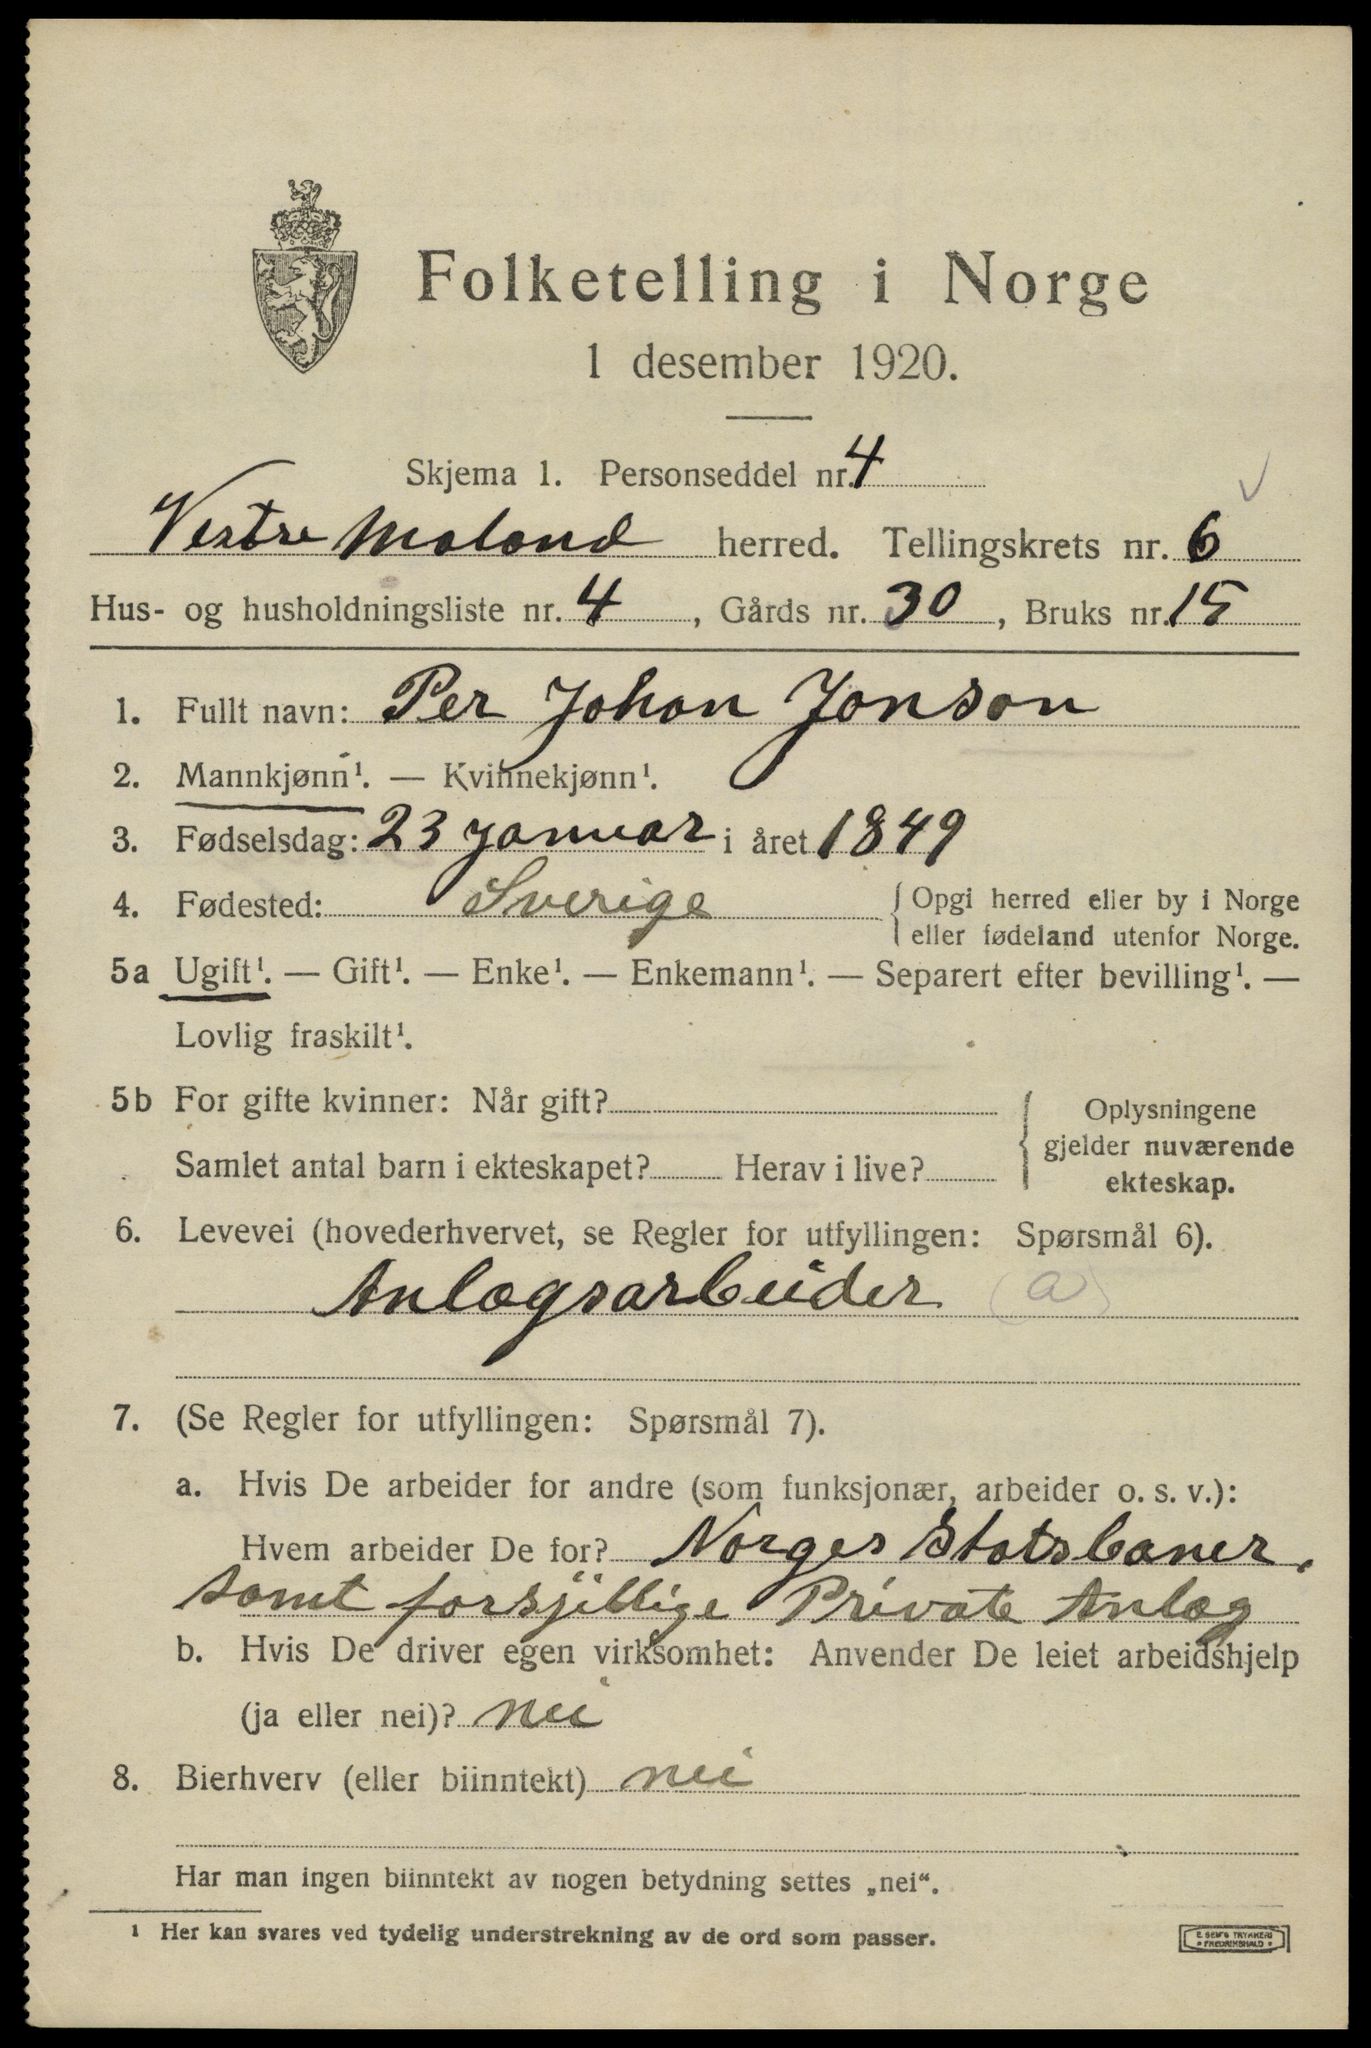 Folketelling i Norge
1 desember 1920.
Skjema 1. Personseddel nr. 4
Vestre Moland herred. Tellingskrets nr. 6
Hus- og husholdningsliste nr. 4, Gårds nr. 30, Bruks nr. 15
1. Fullt navn: Per Johan Jonson
2. Mannkjønn¹. — Kvinnekjønn¹.
3. Fødselsdag: 23 januar i året 1849
4. Fødested: Sverige { Opgi herred eller by i Norge
eller fødeland utenfor Norge.
5a Ugift¹. — Gift¹. — Enke¹. — Enkemann¹. — Separert efter bevilling¹. —
Lovlig fraskilt¹.
5b For gifte kvinner: Når gift?
Samlet antal barn i ekteskapet? Herav i live?
Oplysningene
gjelder nuværende
ekteskap.
6. Levevei (hovederhvervet, se Regler for utfyllingen: Spørsmål 6).
Anlægsarbeider (a)
7. (Se Regler for utfyllingen: Spørsmål 7).
a. Hvis De arbeider for andre (som funksjonær, arbeider o. s. v.):
Hvem arbeider De for? Norges Statsbaner,
samt forsjillige Private Anlæg
b. Hvis De driver egen virksomhet: Anvender De leiet arbeidshjelp
(ja eller nei)? nei
8. Bierhverv (eller biinntekt) nei
Har man ingen biinntekt av nogen betydning settes „nei“.
¹ Her kan svares ved tydelig understrekning av de ord som passer.
E. SEM'S TRYKKERI
• FREDRIKSHALD •